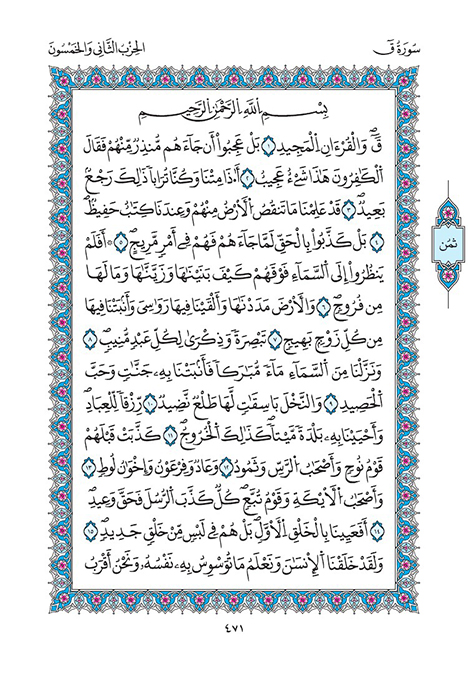 سورة ق
الحزب الثاني والخمسون
بِسْمِ اللَّهِ الرَّحْمَٰنِ الرَّحِيمِ
قٓ وَالْقُرْءَانِ الْمَجِيدِ ١ بَلْ عَجِبُوا أَن جَاءَهُم مُّنذِرٌ مِّنْهُمْ فَقَالَ
الْكَافِرُونَ هَٰذَا شَيْءٌ عَجِيبٌ ٢ أَٰذَا مِتْنَا وَكُنَّا تُرَابًا ذَٰلِكَ رَجْعٌ
بَعِيدٌ ٣ قَدْ عَلِمْنَا مَا تَنقُصُ الْأَرْضُ مِنْهُمْ وَعِندَنَا كِتَابٌ حَفِيظٌ
٤ بَلْ كَذَّبُوا بِالْحَقِّ لَمَّا جَاءَهُمْ فَهُمْ فِي أَمْرٍ مَّرِيجٍ ٥ أَفَلَمْ
يَنظُرُوا إِلَى السَّمَاءِ فَوْقَهُمْ كَيْفَ بَنَيْنَاهَا وَزَيَّنَّاهَا وَمَا لَهَا
مِن فُرُوجٍ ٦ وَالْأَرْضَ مَدَدْنَاهَا وَأَلْقَيْنَا فِيهَا رَوَاسِيَ وَأَنبَتْنَا فِيهَا
مِن كُلِّ زَوْجٍ بَهِيجٍ ٧ تَبْصِرَةً وَذِكْرَىٰ لِكُلِّ عَبْدٍ مُّنِيبٍ ٨
وَنَزَّلْنَا مِنَ السَّمَاءِ مَاءً مُّبَارَكًا فَأَنبَتْنَا بِهِ جَنَّاتٍ وَحَبَّ
الْحَصِيدِ ٩ وَالنَّخْلَ بَاسِقَاتٍ لَّهَا طَلْعٌ نَّضِيدٌ ١٠ رِّزْقًا لِّلْعِبَادِ
وَأَحْيَيْنَا بِهِ بَلْدَةً مَّيْتًا كَذَٰلِكَ الْخُرُوجُ ١١ كَذَّبَتْ قَبْلَهُمْ
قَوْمُ نُوحٍ وَأَصْحَابُ الرَّسِّ وَثَمُودُ ١٢ وَعَادٌ وَفِرْعَوْنُ وَإِخْوَانُ لُوطٍ ١٣
وَأَصْحَابُ الْأَيْكَةِ وَقَوْمُ تُبَّعٍ كُلٌّ كَذَّبَ الرُّسُلَ فَحَقَّ وَعِيدِ
١٤ أَفَعَيِينَا بِالْخَلْقِ الْأَوَّلِ بَلْ هُمْ فِي لَبْسٍ مِّنْ خَلْقٍ جَدِيدٍ ١٥
وَلَقَدْ خَلَقْنَا الْإِنسَانَ وَنَعْلَمُ مَا تُوَسْوِسُ بِهِ نَفْسُهُ وَنَحْنُ أَقْرَبُ
ثمن
٤٧١